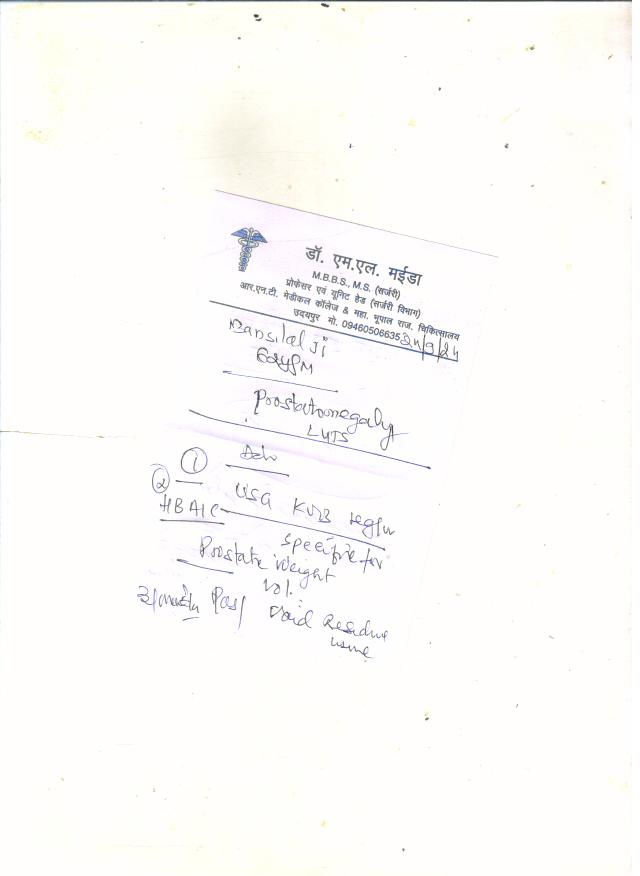 डॉ. एम.एल. मईडा
M.B.B.S., M.S. (सर्जरी)
प्रोफेसर एवं यूनिट हेड (सर्जरी विभाग)
आर.एन.टी. मेडीकल कॉलेज & महा. भूपाल राज. चिकित्सालय
उदयपुर मो. 09460506635
24/9/24
Bansilal Ji
Prostatomegaly
LUTS
①
USG KUB region
②
HBAIC
specific for
Prostate weight
Vol.
Post Void Residue